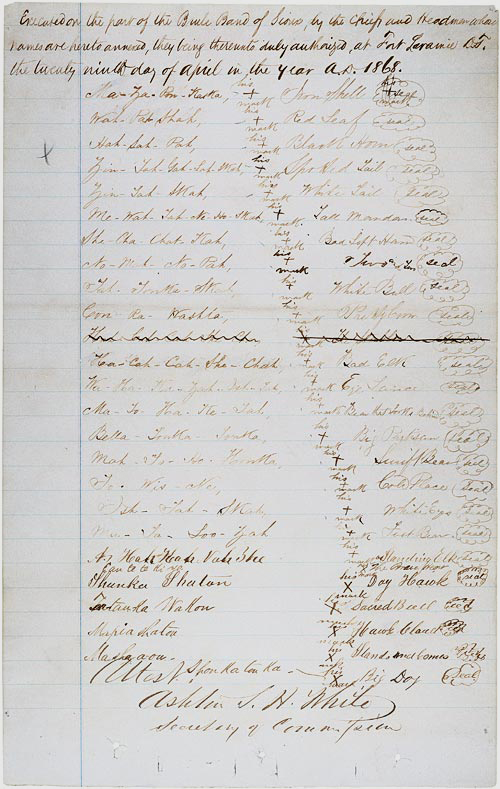 Executed on the part of the Brule Band of Sioux, by the Chiefs and Headmen whose
names are hereto annexed, they being thereunto duly authorized, at Fort Laramie D.T.
the twenty ninth day of April in the year A.D. 1868.
Ma-Za-Pon-Kaska, his + mark Iron Shell his + mark seal
Wah-Pat-Shah, his + mark Red Leaf seal
Hah-Sah-Pah, his + mark Black Horn seal
Zin-Tah-Gah-Lat-Wah his + mark Spotted Tail seal
Zin-Tah-Skah, his + mark White Tail seal
Me-Wah-Tah-Ne-Ho-Skah, his + mark Tall Mandan seal
She-Cha-Chat-Kah, his + mark Bad Left Hand seal
No-Mah-No-Pah, his + mark Two & Two seal
Tah-Tonka-Skah, his + mark White Bull seal
Con-Ra-Washta, his + mark seal
Ha-Cah-Cah-She-Chah, his + mark Bad Elk seal
his + mark seal
Ma-To-Ha-Ke-Tah, his + mark seal
Bella-Tonka-Tonka, his + mark Big Partisan seal
Mah-To-Ho-Honka, his + mark Swift Bear seal
To-Wis-Ne, his + mark Cold Place seal
Ish-Tah-Skah, his + mark White Eyes seal
Ma-Ta-Loo-Zah his + mark Fast Bear seal
As Hah Hah Nah She his + mark Standing Elk seal
Can te te ki ya his x mark The Brave Heart seal
Shunka Shaton his x mark Day Hawk seal
Tatanka Wakon his x mark Sacred Bull seal
Mapia Shaton his x mark Hawk Cloud seal
Mashaaow his x mark Stands and Comes seal
Shonkatonka his x mark Big Dog seal
(Attest)
Ashton S. H. White
Secretary of Commission